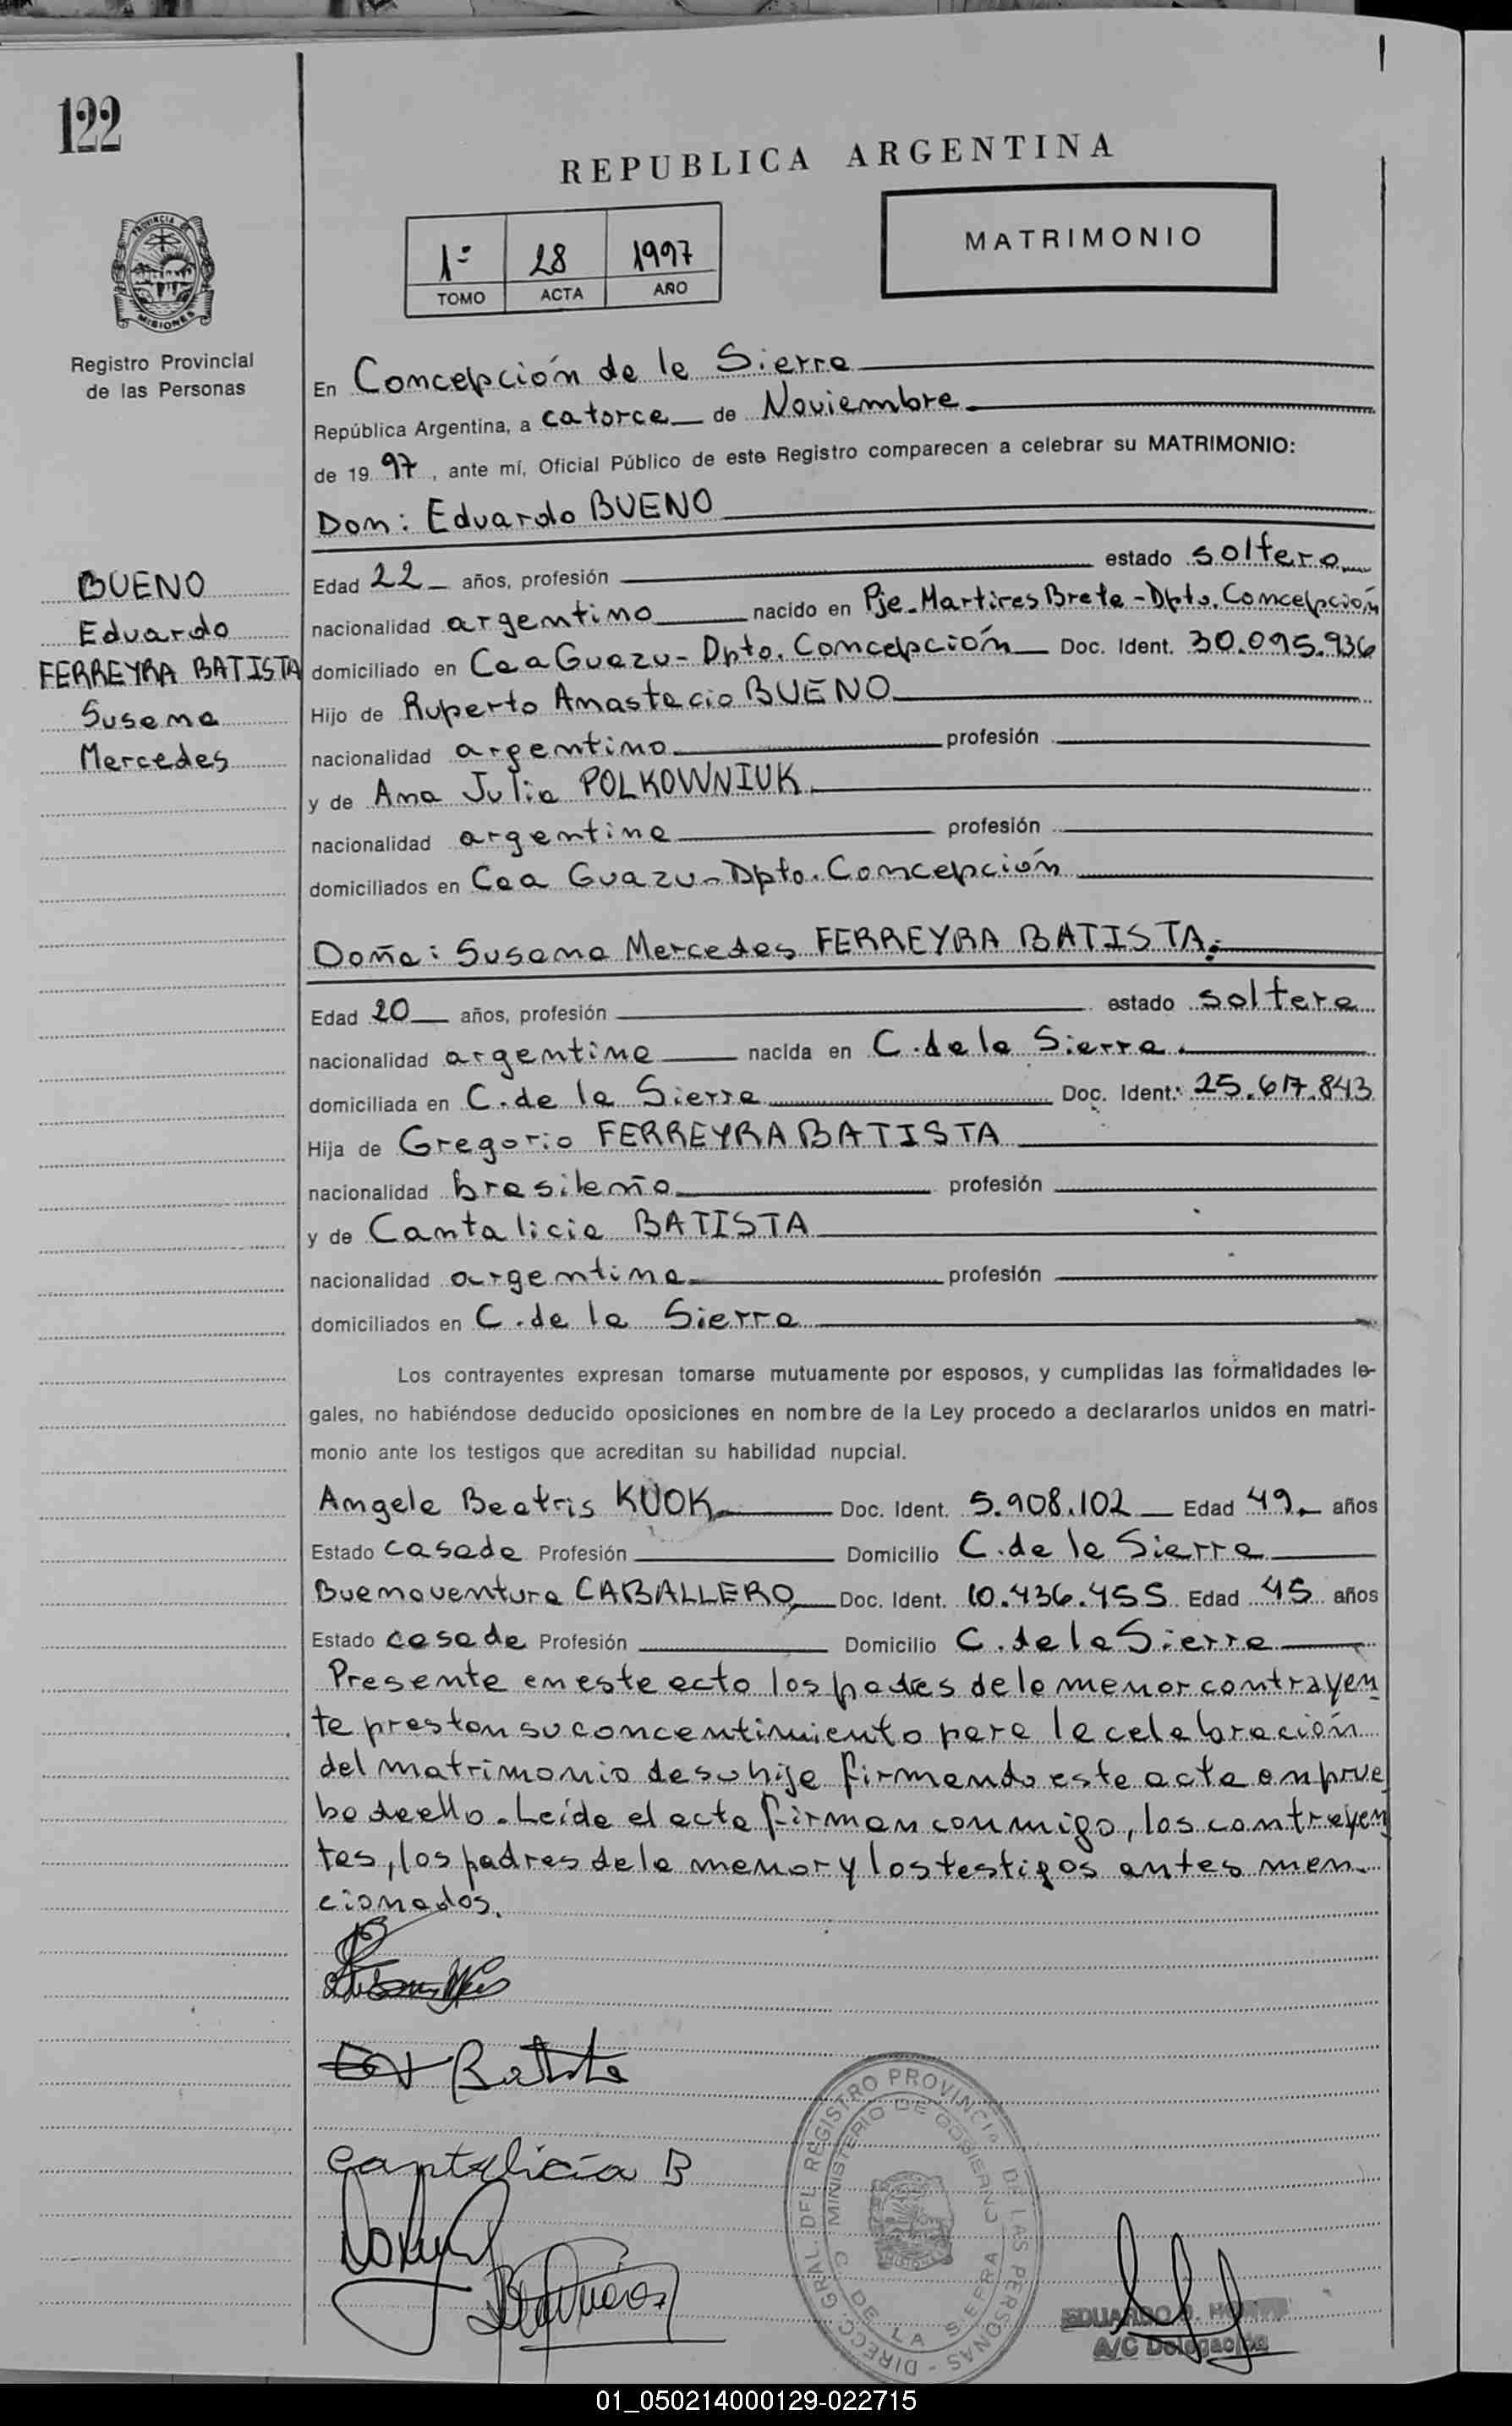 122
REPUBLICA ARGENTINA
PROVINCIA DE
MISIONES
Registro Provincial
de las Personas
1º 28 1997
TOMO ACTA AÑO
MATRIMONIO
En Concepción de la Sierra
República Argentina, a catorce de Noviembre
de 1997, ante mí, Oficial Público de este Registro comparecen a celebrar su MATRIMONIO:
Don: Eduardo BUENO
BUENO
Eduardo
FERREYRA BATISTA
Susana
Mercedes
Edad 22 años, profesión estado soltero
nacionalidad argentino nacido en Pje. Martires Brete - Dpto. Concepción
domiciliado en Caa Guazu - Dpto. Concepción Doc. Ident. 30.095.936
Hijo de Ruperto Anastacio BUENO
nacionalidad argentino profesión
y de Ana Julia POLKOWNIUK
nacionalidad argentina profesión
domiciliados en Caa Guazu - Dpto. Concepción
Doña: Susana Mercedes FERREYRA BATISTA.
Edad 20 años, profesión estado soltera
nacionalidad argentina nacida en C. de la Sierra.
domiciliada en C. de la Sierra Doc. Ident: 25.617.843
Hija de Gregorio FERREYRA BATISTA
nacionalidad brasileño profesión
y de Cantalicia BATISTA
nacionalidad argentina profesión
domiciliados en C. de la Sierra
Los contrayentes expresan tomarse mutuamente por esposos, y cumplidas las formalidades le-
gales, no habiéndose deducido oposiciones en nombre de la Ley procedo a declararlos unidos en matri-
monio ante los testigos que acreditan su habilidad nupcial.
Angela Beatris KUOK Doc. Ident. 5.908.102 Edad 49 años
Estado casada Profesión Domicilio C. de la Sierra
Buenaventura CABALLERO Doc. Ident. 10.436.455 Edad 45 años
Estado casado Profesión Domicilio C. de la Sierra
Presente en este acto los padres de la menor contrayen
te prestan su concentimiento para la celebración
del matrimonio de su hija firmando este acta en prue
ba de ello. Leida el acta firman conmigo, los contrayen
tes, los padres de la menor y los testigos antes men-
cionados.
Batista
Cantalicia B
DIRECC. GRAL. DEL REGISTRO PROVINCIAL DE LAS PERSONAS -
MINISTERIO DE GOBIERNO
C. DE LA SIERRA
EDUARDO
A/C Delegación
01_050214000129-022715